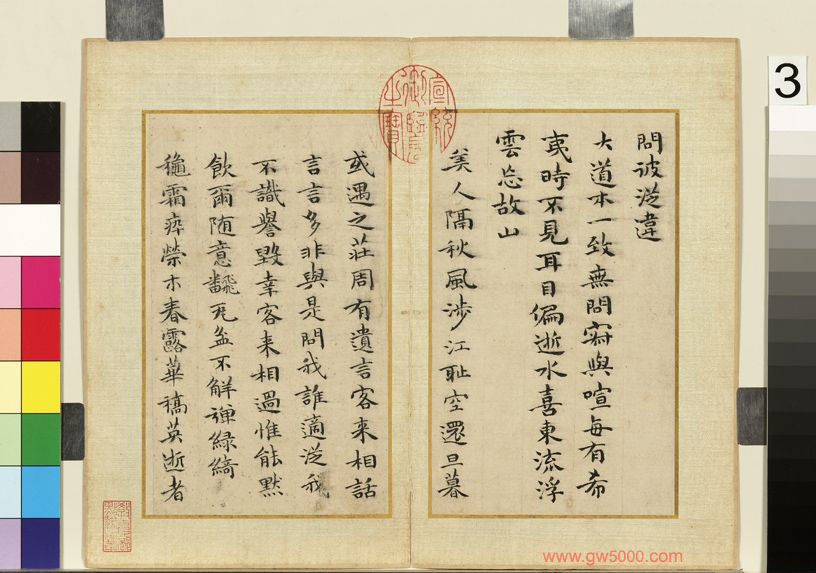 問彼從違
大道本一致無問寂與喧每有希
夷時不見耳目偏逝水喜東流浮
雲忘故山
美人隔秋風涉江耻空還旦暮
或遇之莊周有遺言客來相話
言言多非與是問我誰適從我
不識譽毀幸客來相過惟能默
飲爾随意飜死盆不解彈緑綺
穠霜瘁榮木春露華槁英逝者
宣統御覽之寶
3
www.gw5000.com